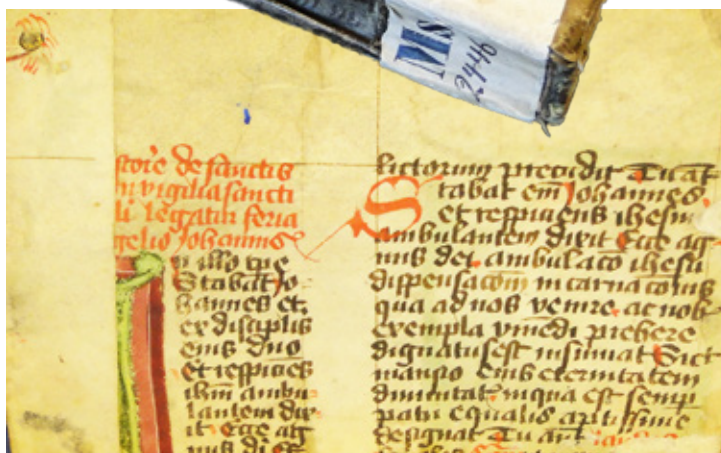 Ms
2446
storie de sanctis
In vigilia sancti
legatur feria
gelio Johannis
n illo tpe
Stabat Jo
hannes et
ex discipulis
eius duo
Et respiciẽs
ihm ambu
lantem dix
it Ecce ag
nus di et
lictorum precidit
Stabat em Johannes
et respiciens ihesu
ambulantem dixit Ecce ag
nus dei ambulacõ ihesu
dispensacõm incarnacõnis
qua ad nos venire ac nob
exempla viuendi prebere
dignatus est insinuat Sict
mansio eius eternitatem
diuinitat in qua est semp
patri equalis aptissime
designat